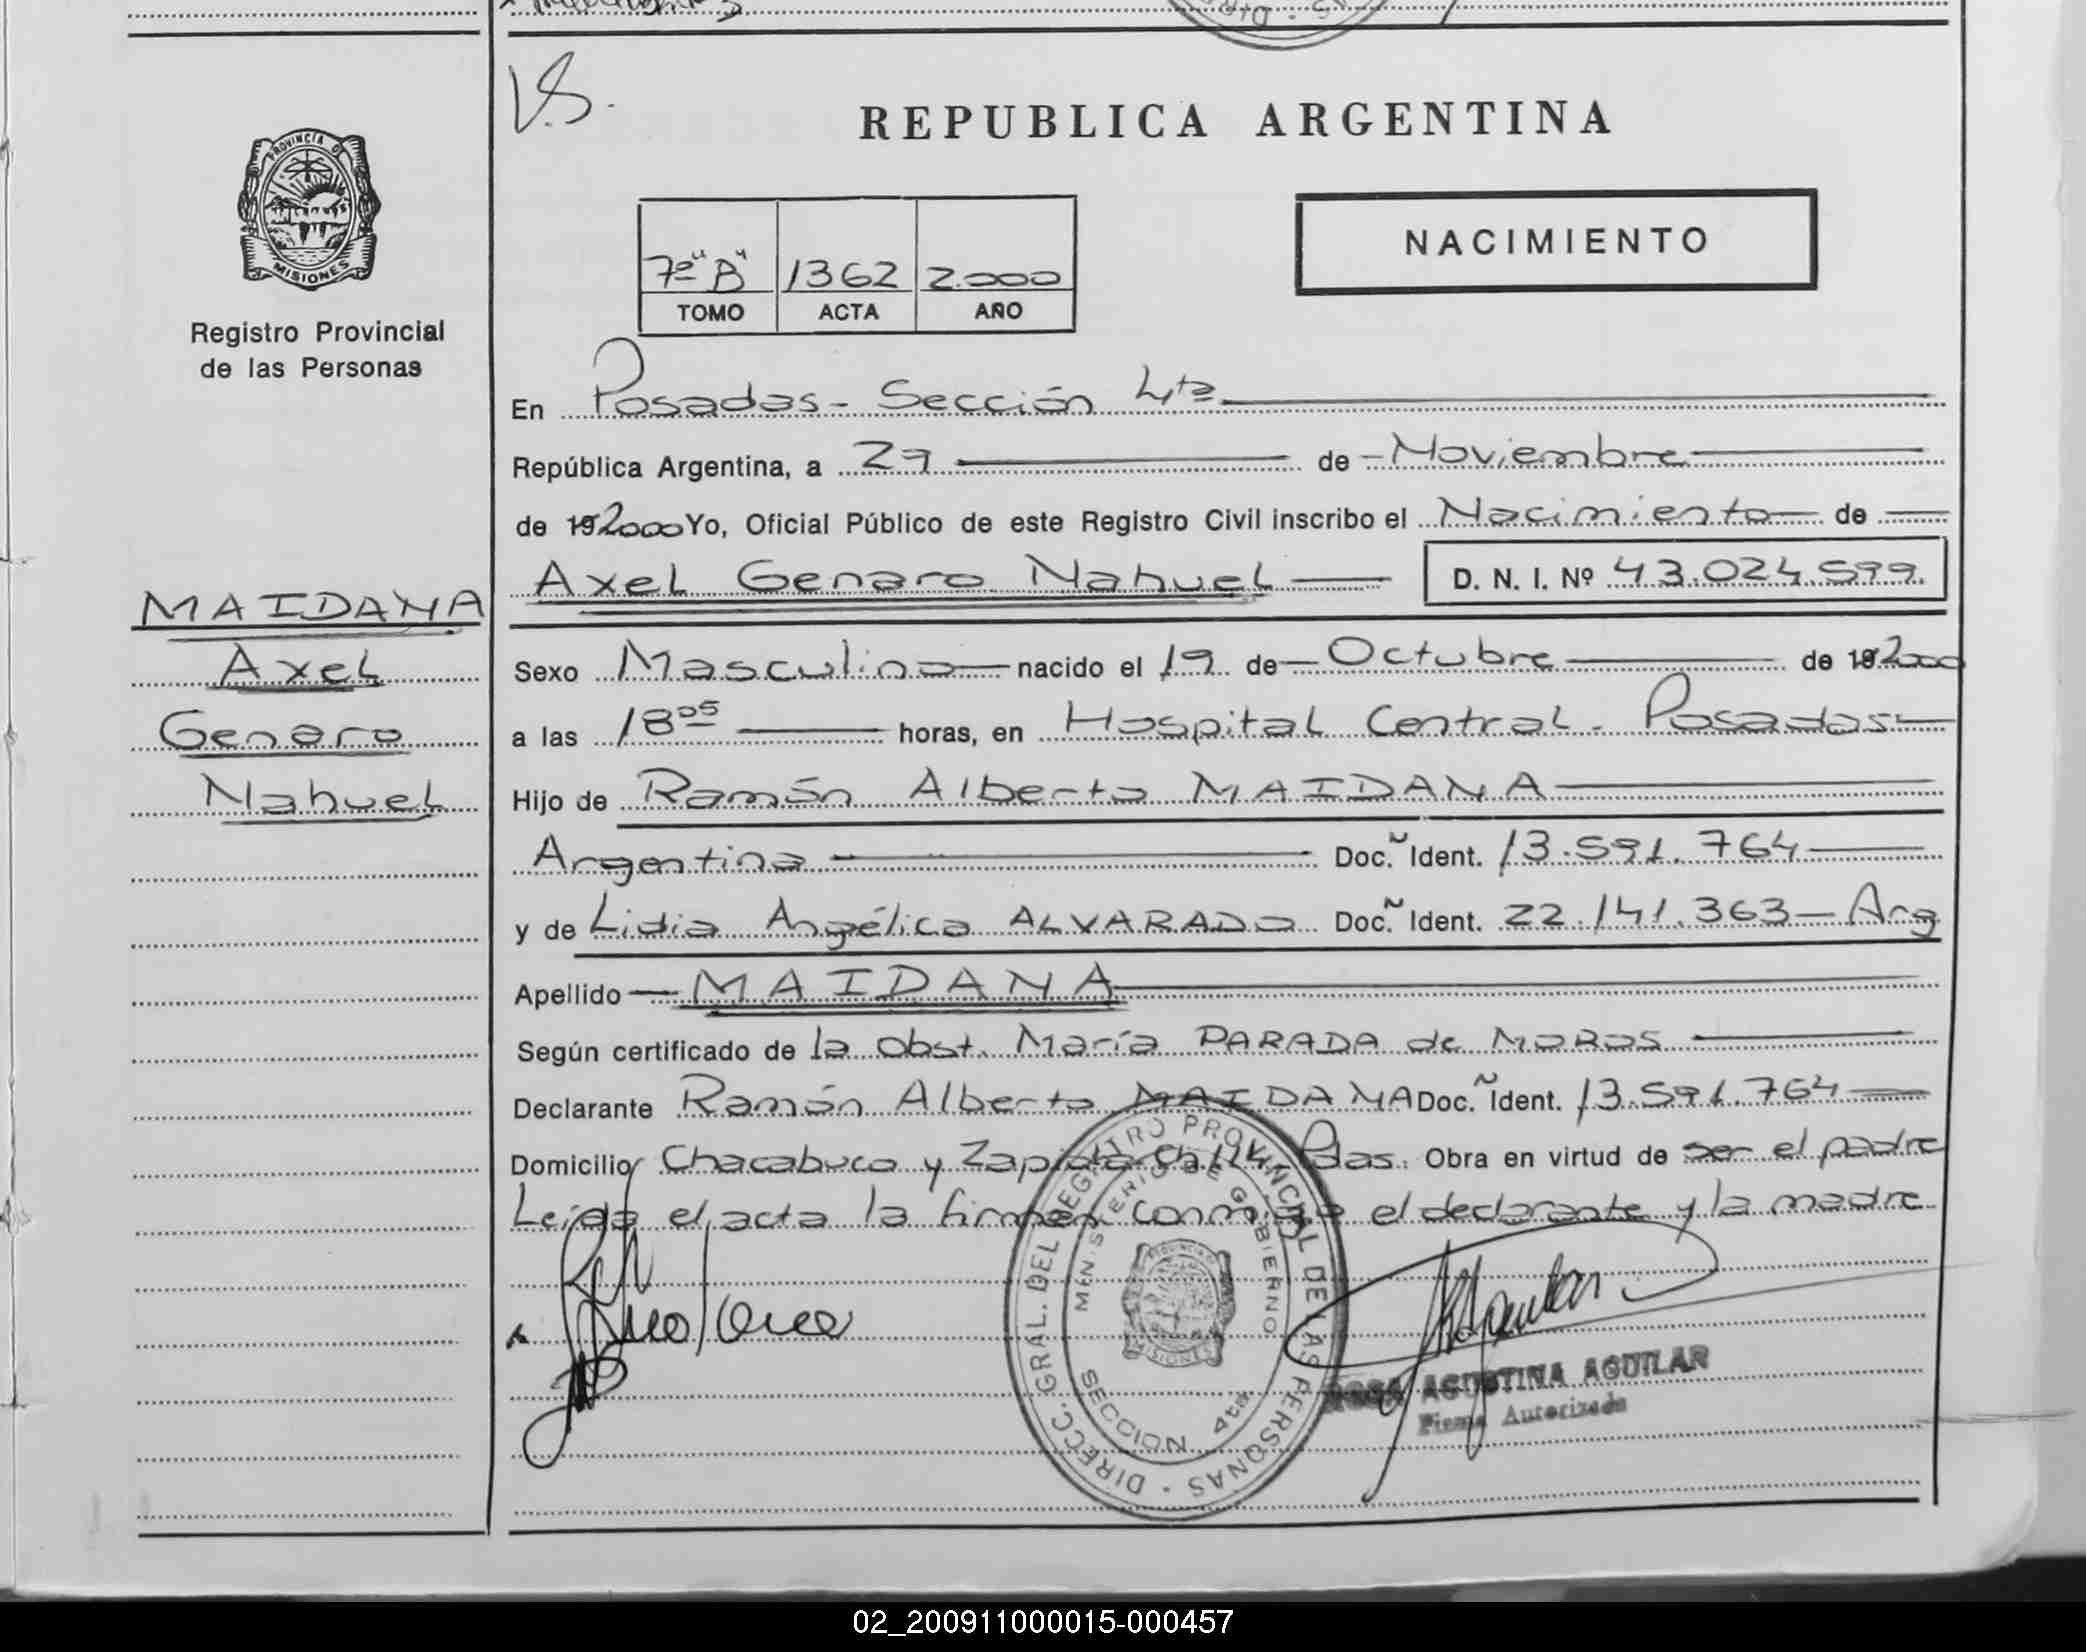 V.S.
REPUBLICA ARGENTINA
PROVINCIA D
MISIONES
Registro Provincial
de las Personas
NACIMIENTO
7º "B" 1362 2.000
TOMO ACTA AÑO
En Posadas - Sección 4ta
República Argentina, a 29 de Noviembre
de 192000 Yo, Oficial Público de este Registro Civil inscribo el Nacimiento de
Axel Genaro Nahuel D. N. I. Nº 43.024.599.
MAIDANA
Axel
Genaro
Nahuel
Sexo Masculino nacido el 19 de Octubre de 192000
a las 18 05 horas, en Hospital Central - Posadas
Hijo de Ramón Alberto MAIDANA
Argentina Doc. Ident. 13.591.764
y de Lidia Angélica ALVARADO Doc. Ident. 22.141.363 - Arg
Apellido MAIDANA
Según certificado de la Obst. María PARADA de MORAS
Declarante Ramón Alberto MAIDANA Doc. Ident. 13.591.764
Domicilio Chacabuco y Zapiola Pdas. Obra en virtud de ser el padre
Leída el acta la firman conmigo el declarante y la madre
DIRECC. GRAL. DEL REGISTRO PROVINCIAL DE LAS PERSONAS
MINISTERIO DE GOBIERNO
SECCION 4ta
MISIONES
ROSA AGUSTINA AGUILAR
Firma Autorizada
02_200911000015-000457